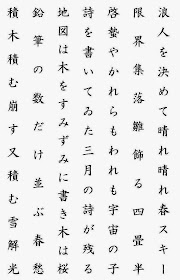 浪人を決めて晴れ晴れ春スキー
限界集落雛飾る四畳半
啓蟄やかれらもわれも宇宙の子
詩を書いてゐた三月の詩が残る
地図は木をすみずみに書き木は桜
鉛筆の数だけ並ぶ春愁
積木積む崩す又積む雪解光